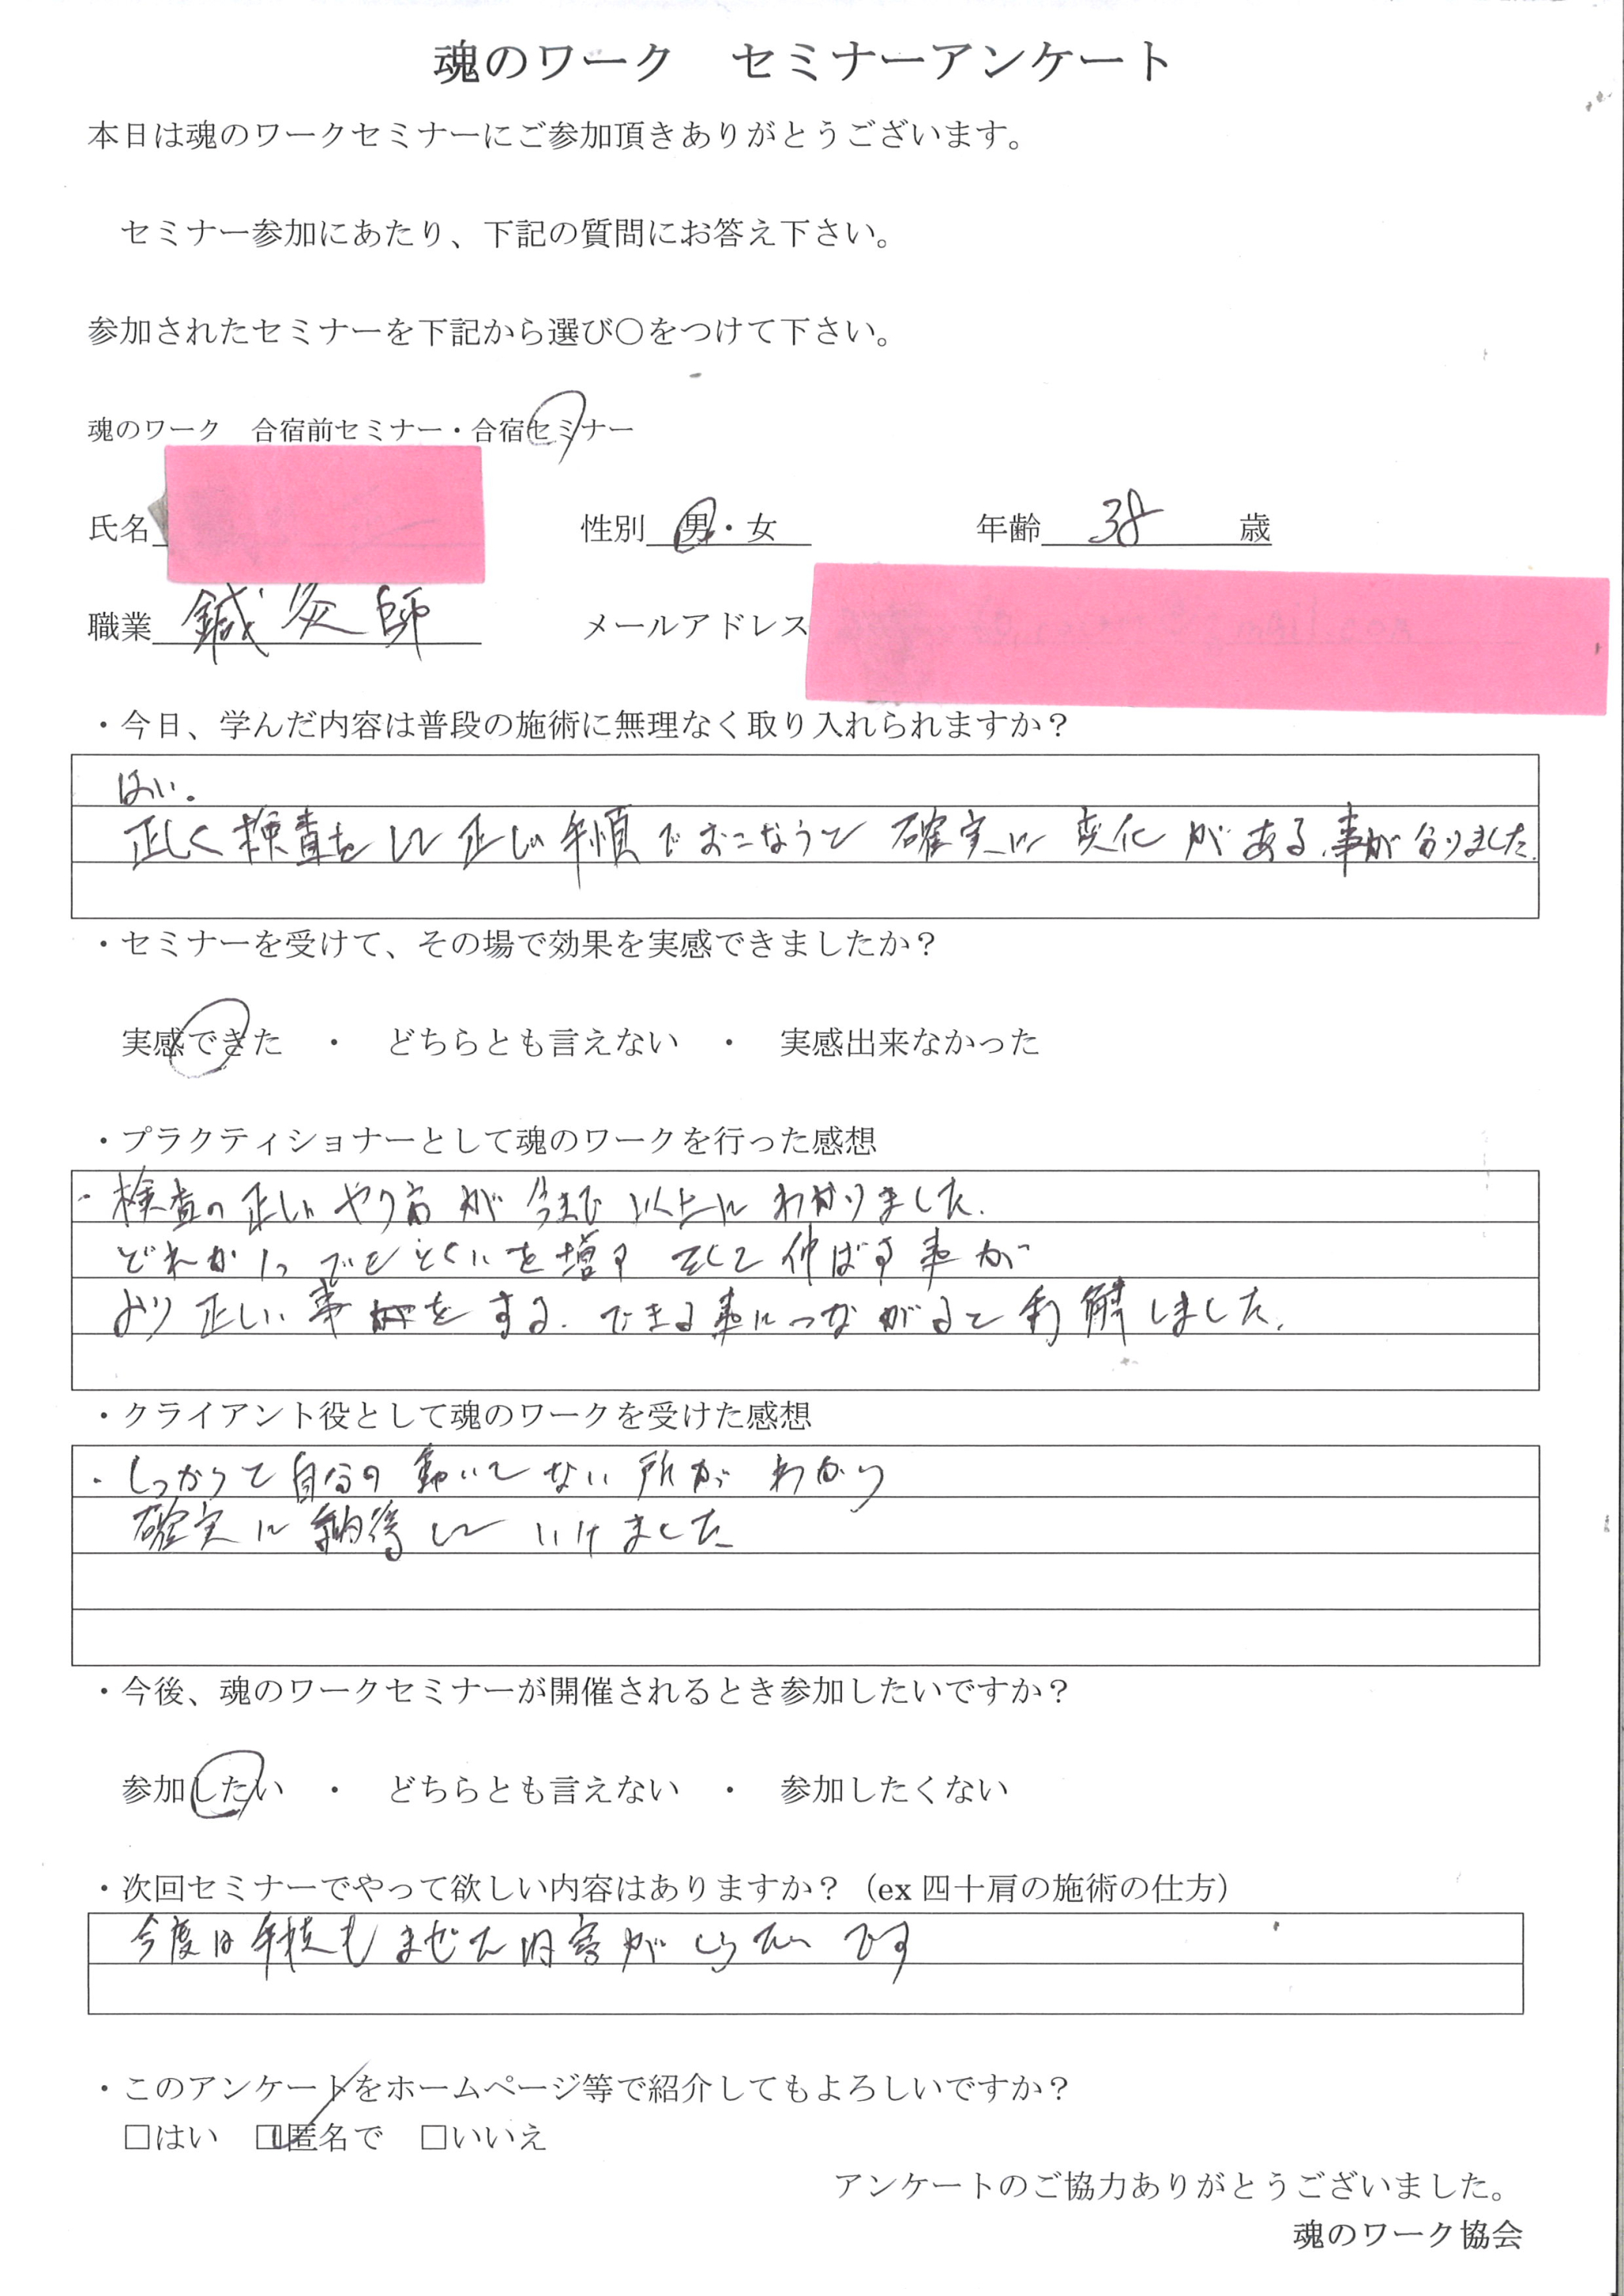 魂のワーク　セミナーアンケート
本日は魂のワークセミナーにご参加頂きありがとうございます。
セミナー参加にあたり、下記の質問にお答え下さい。
参加されたセミナーを下記から選び〇をつけて下さい。
魂のワーク　合宿前セミナー・合宿セミナー
氏名　性別 男・女　年齢 38 歳
職業 鍼灸師　メールアドレス
・今日、学んだ内容は普段の施術に無理なく取り入れられますか？
はい.
正しく検査をして正しい手順でおこなうと確実に変化がある事が分りました.
・セミナーを受けて、その場で効果を実感できましたか？
実感できた　・　どちらとも言えない　・　実感出来なかった
・プラクティショナーとして魂のワークを行った感想
・検査の正しいやり方が今まで以上にわかりました.
どれか1つでもとくいを増す そして伸ばす事が
より正しい事をする. できる事につながると利解しました.
・クライアント役として魂のワークを受けた感想
・しっかりと自分の動いてない所がわかり
確実に納得していけました
・今後、魂のワークセミナーが開催されるとき参加したいですか？
参加したい　・　どちらとも言えない　・　参加したくない
・次回セミナーでやって欲しい内容はありますか？（ex 四十肩の施術の仕方）
今度は手技もまぜた内容がしりたいです
・このアンケートをホームページ等で紹介してもよろしいですか？
□はい　□匿名で　□いいえ
アンケートのご協力ありがとうございました。
魂のワーク協会